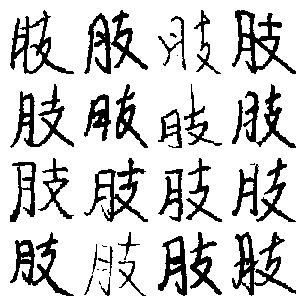 肢肢肢肢
肢肢肢肢
肢肢肢肢
肢肢肢肢